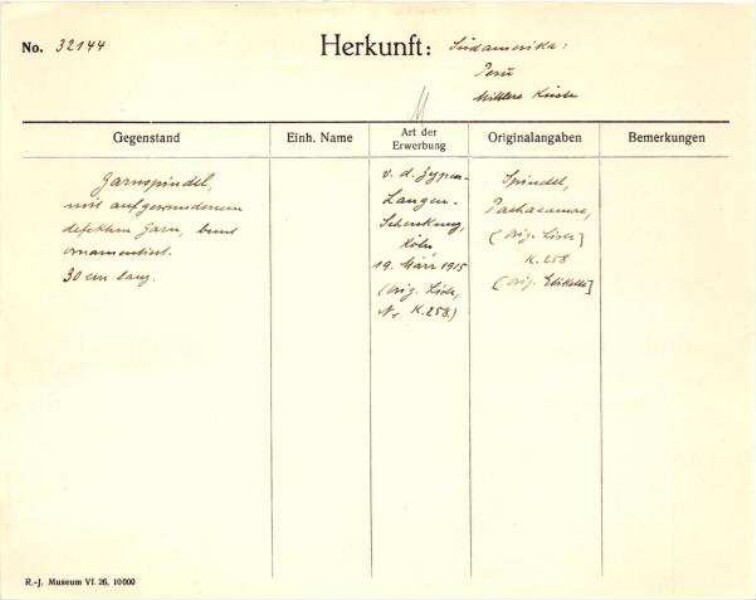 No. 32144
Herkunft: Südamerika:
Perú
Mittlere Küste
Gegenstand
Einh. Name
Art der
Erwerbung
Originalangaben
Bemerkungen
Garnspindel,
mit aufgewundenem
defektem Garn, bunt
ornamentiert.
30 cm lang.
v. d. Zypen-
Langen-
Schenkung,
Köln
19. März 1915
(Orig. Liste,
Nr K.258.)
Spindel,
Pachacamac,
(Orig. Liste]
K.258
(Orig. Etikette]
R.-J. Museum VI. 26. 10000